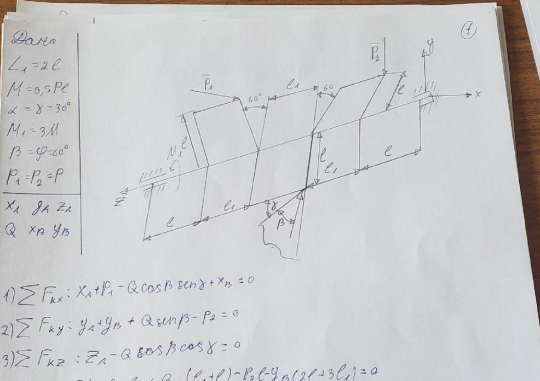 Дано
L₁=2l
M=0,5Pl
α=γ=30°
M₁=3M
β=φ=60°
P₁=P₂=P
X_A Y_A Z_A
Q X_B Y_B
1
P̄₁
60°
l₁
60
P̄₂
y
x
l
M₁
l
l
l₁
z
l
l₁
γ
β
l
1) ΣF_kx: X_A+P₁-Qcosβsinγ+X_B=0
2) ΣF_ky: Y_A+Y_B+Qsinβ-P₂=0
3) ΣF_kz: Z_A-Qcosβcosγ=0
(l₁+l)-P₂l-Y_B(2l+3l₁)=0